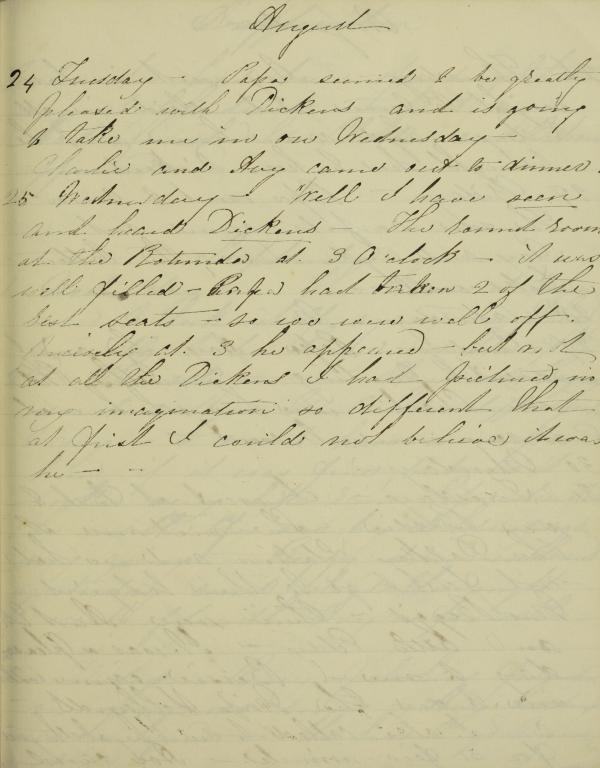 August
24 Tuesday - Papa seemed to be greatly
pleased with Dickens and is going
to take me in on Wednesday -
Charlie and Aug came out to dinner.
25 Wednesday - Well I have seen
and heard Dickens - The round room
at the Rotunda at 3 O'clock - it was
well filled - Papa had taken 2 of the
best seats - so we were well off.
Precisely at 3 he appeared - but not
at all the Dickens I had pictured in
my imagination so different that
at first I could not believe it was
he - - -